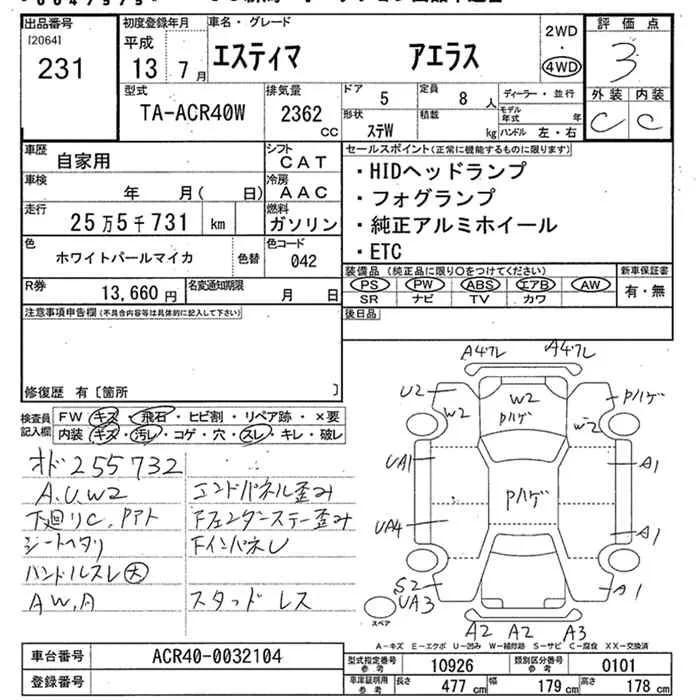 出品番号
[2064]
231
初度登録年月
平成
13 7 月
車名・グレード
エスティマ アエラス
2WD
・
4WD
評価点
3
外装 内装
C C
型式
TA-ACR40W
排気量
2362 CC
ドア 5
定員 8 人
形状 ステW
積載 kg
ディーラー・並行
モデル年式 年
ハンドル 左・右
車歴 自家用
シフト CAT
車検 年 月( 日)
冷房 AAC
走行 25万5千731 km
燃料 ガソリン
色 ホワイトパールマイカ 色替
色コード 042
R券 13,660 円
名変通知期限 月 日
セールスポイント(正常に機能するものに限ります)
・HIDヘッドランプ
・フォグランプ
・純正アルミホイール
・ETC
装備品(純正品に限り○をつけてください)
PS PW ABS エアB AW
SR ナビ TV カワ
新車保証書
有・無
後日品
注意事項申告欄(不具合内容等は具体的に記入して下さい)
修復歴 有〔箇所 〕
検査員記入欄
FW キズ・飛石・ヒビ割・リペア跡・×要
内装 キズ・汚レ・コゲ・穴・スレ・キレ・破レ
オド255732
A.U.W2
下廻りC.Pアト
シートヘタリ
ハンドルスレ大
AW.A
エンドパネル歪み
Fフェンダーステー歪み
Fインパネレ
スタッドレス
A4フレ A4フレ
U2 W2 W2 W2 Pハゲ
Pハゲ
UA1 A1
Pハゲ
UA4 A1
S2 A1
UA3
スペア
A2 A2 A3
A-キズ E-エクボ U-凹み W-補修跡 S-サビ C-腐食 XX-交換済
車台番号 ACR40-0032104
登録番号
型式指定番号 参考 10926
類別区分番号 参考 0101
車庫証明用 参考
長さ 477 cm
幅 179 cm
高さ 178 cm